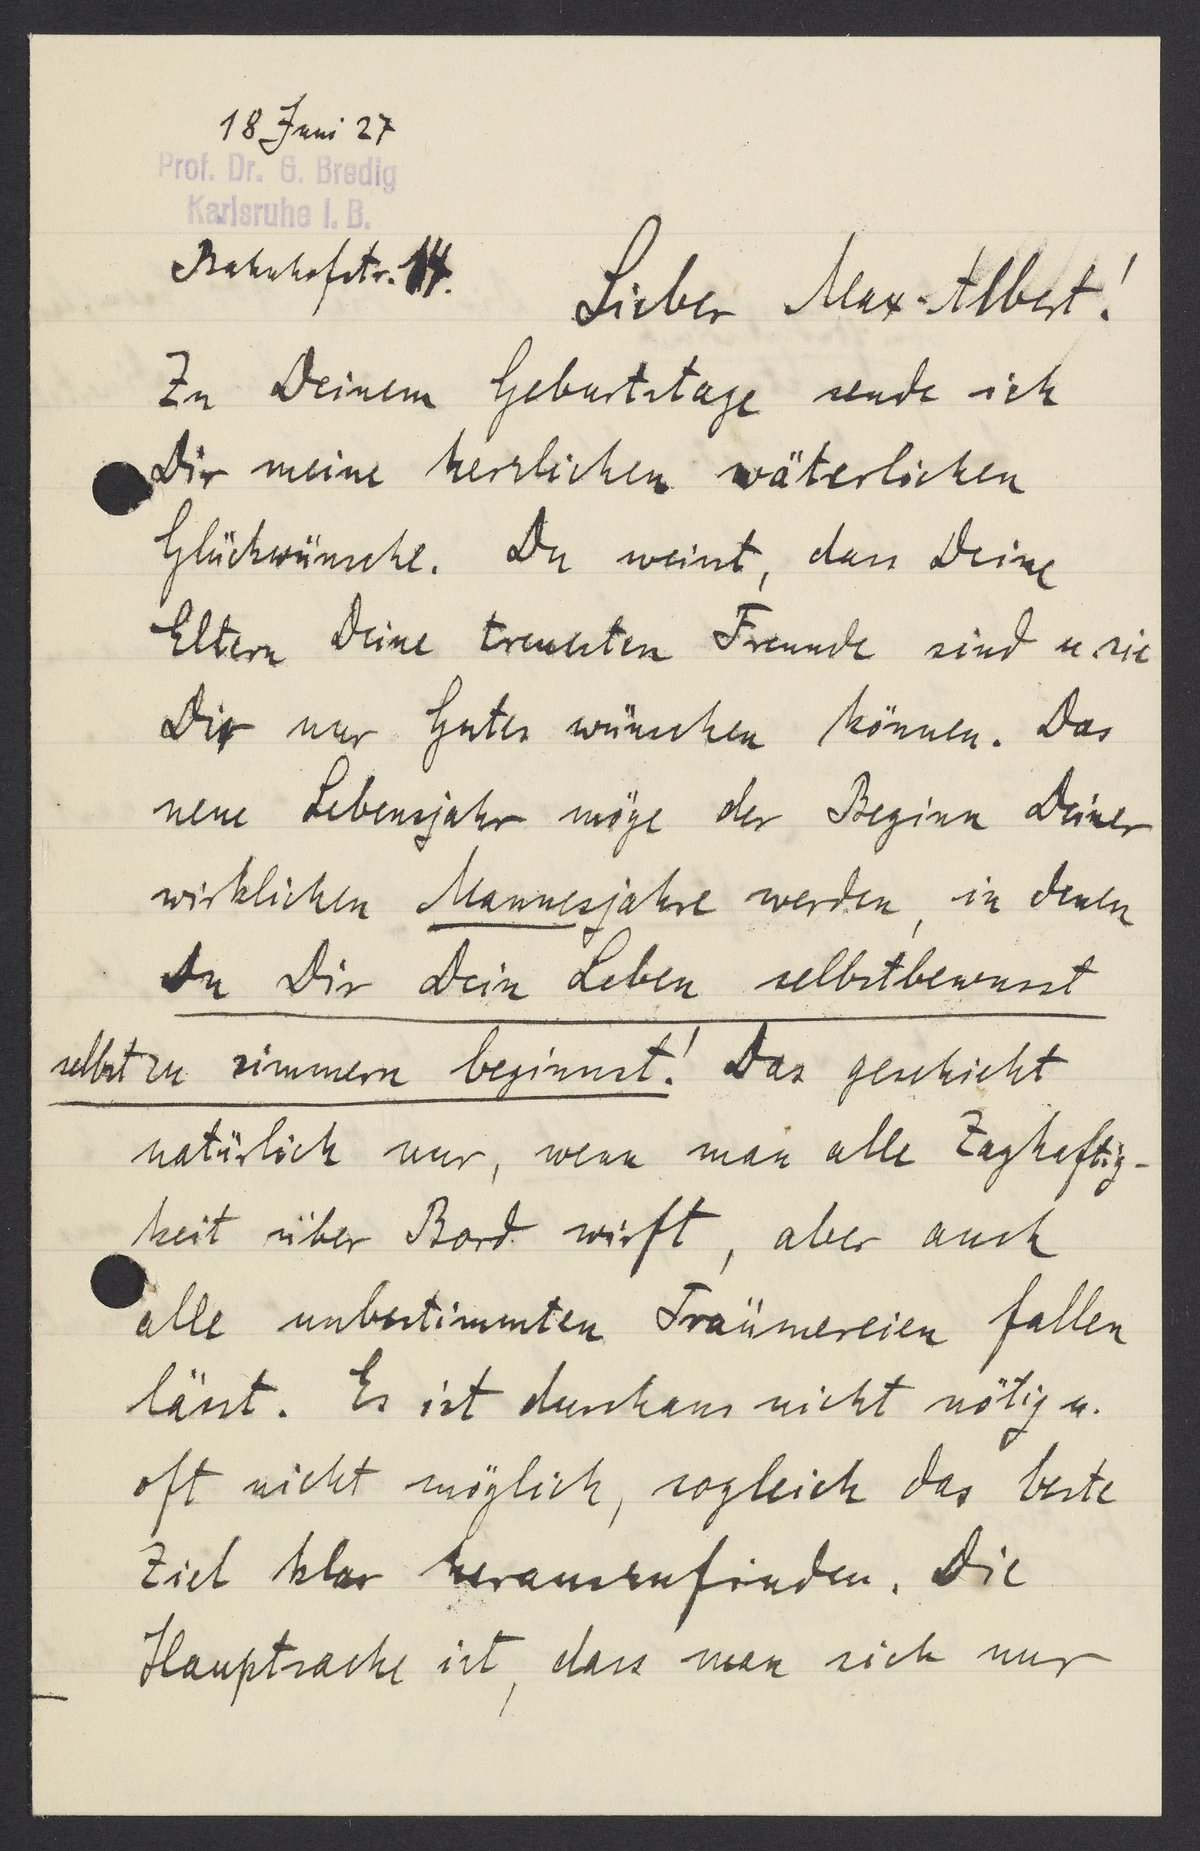 18 Juni 27
Prof. Dr. G. Bredig
Karlsruhe i. B.
Bahnhofstr. 14.
Lieber Max-Albert!
Zu Deinem Geburtstage sende ich
Dir meine herzlichen väterlichen
Glückwünsche. Du weisst, dass Deine
Eltern Deine treuesten Freunde sind u. sie
Dir nur Gutes wünschen können. Das
neue Lebensjahr möge der Beginn Deiner
wirklichen Mannesjahre werden, in denen
Du Dir Dein Leben selbstbewusst
selbst zu zimmern beginnst! Das geschieht
natürlich nur, wenn man alle Zaghaftig-
keit über Bord wirft, aber auch
alle unbestimmten Träumereien fallen
lässt. Es ist durchaus nicht nötig u.
oft nicht möglich, sogleich das beste
Ziel klar herauszufinden. Die
Hauptsache ist, dass man sich nur